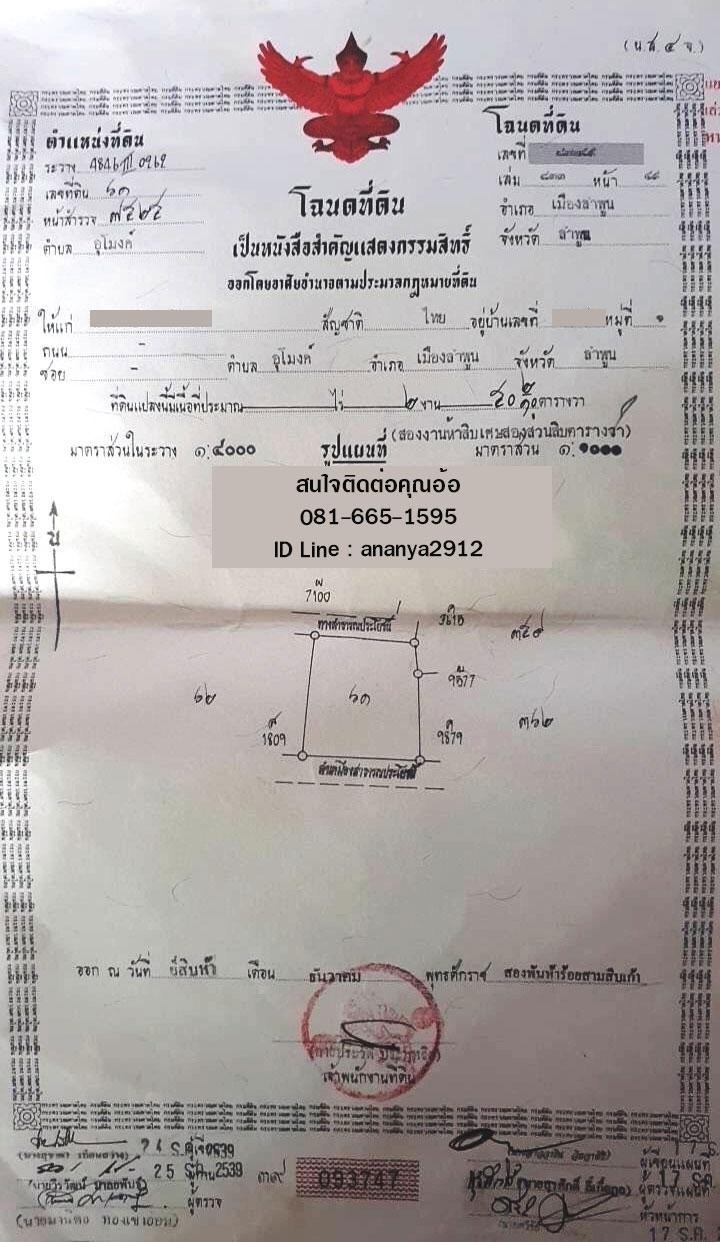 (น.ส. ๔ จ.)
ตำแหน่งที่ดิน
ระวาง 4846 III 0262
เลขที่ดิน ๖๑
หน้าสำรวจ
ตำบล อุโมงค์
โฉนดที่ดิน
เลขที่
เล่ม ๘๓๓ หน้า ๔๕
อำเภอ เมืองลำพูน
จังหวัด ลำพูน
โฉนดที่ดิน
เป็นหนังสือสำคัญแสดงกรรมสิทธิ์
ออกโดยอาศัยอำนาจตามประมวลกฎหมายที่ดิน
ให้แก่ สัญชาติ ไทย อยู่บ้านเลขที่ หมู่ที่ ๑
ถนน -
ซอย - ตำบล อุโมงค์ อำเภอ เมืองลำพูน จังหวัด ลำพูน
ที่ดินแปลงนี้มีเนื้อที่ประมาณ ไร่ ๒ งาน ๕๐ ๒/๑๐ ตารางวา
(สองงานห้าสิบเศษสองส่วนสิบตารางวา)
มาตราส่วนในระวาง ๑:๔๐๐๐ รูปแผนที่ มาตราส่วน ๑:๑๐๐๐
สนใจติดต่อคุณอ้อ
081-665-1595
ID Line : ananya2912
น
7100
ทางสาธารณประโยชน์
๓๕๙
9877
๖๒
๖๑
๓๖๒
1809
9879
ลำเหมืองสาธารณประโยชน์
ออก ณ วันที่ ยี่สิบห้า เดือน ธันวาคม พุทธศักราช สองพันห้าร้อยสามสิบเก้า
เจ้าพนักงานที่ดิน
24 ธ.ค. 2539
25 ธ.ค. 2539
ผู้ตรวจ
๓๙ 093747
ผู้เขียนแผนที่
ผู้ตรวจแผนที่
หัวหน้าการ
17 ธ.ค.